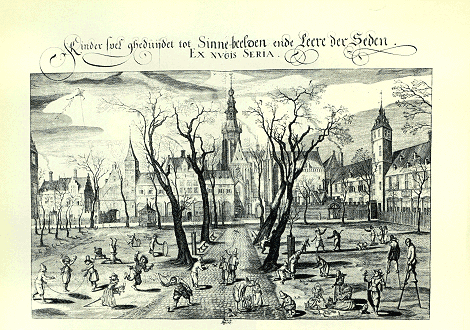 Kinder spel ghedüydet tot Sinne-beelden ende Leere der Seden
EX NVGIS SERIA.